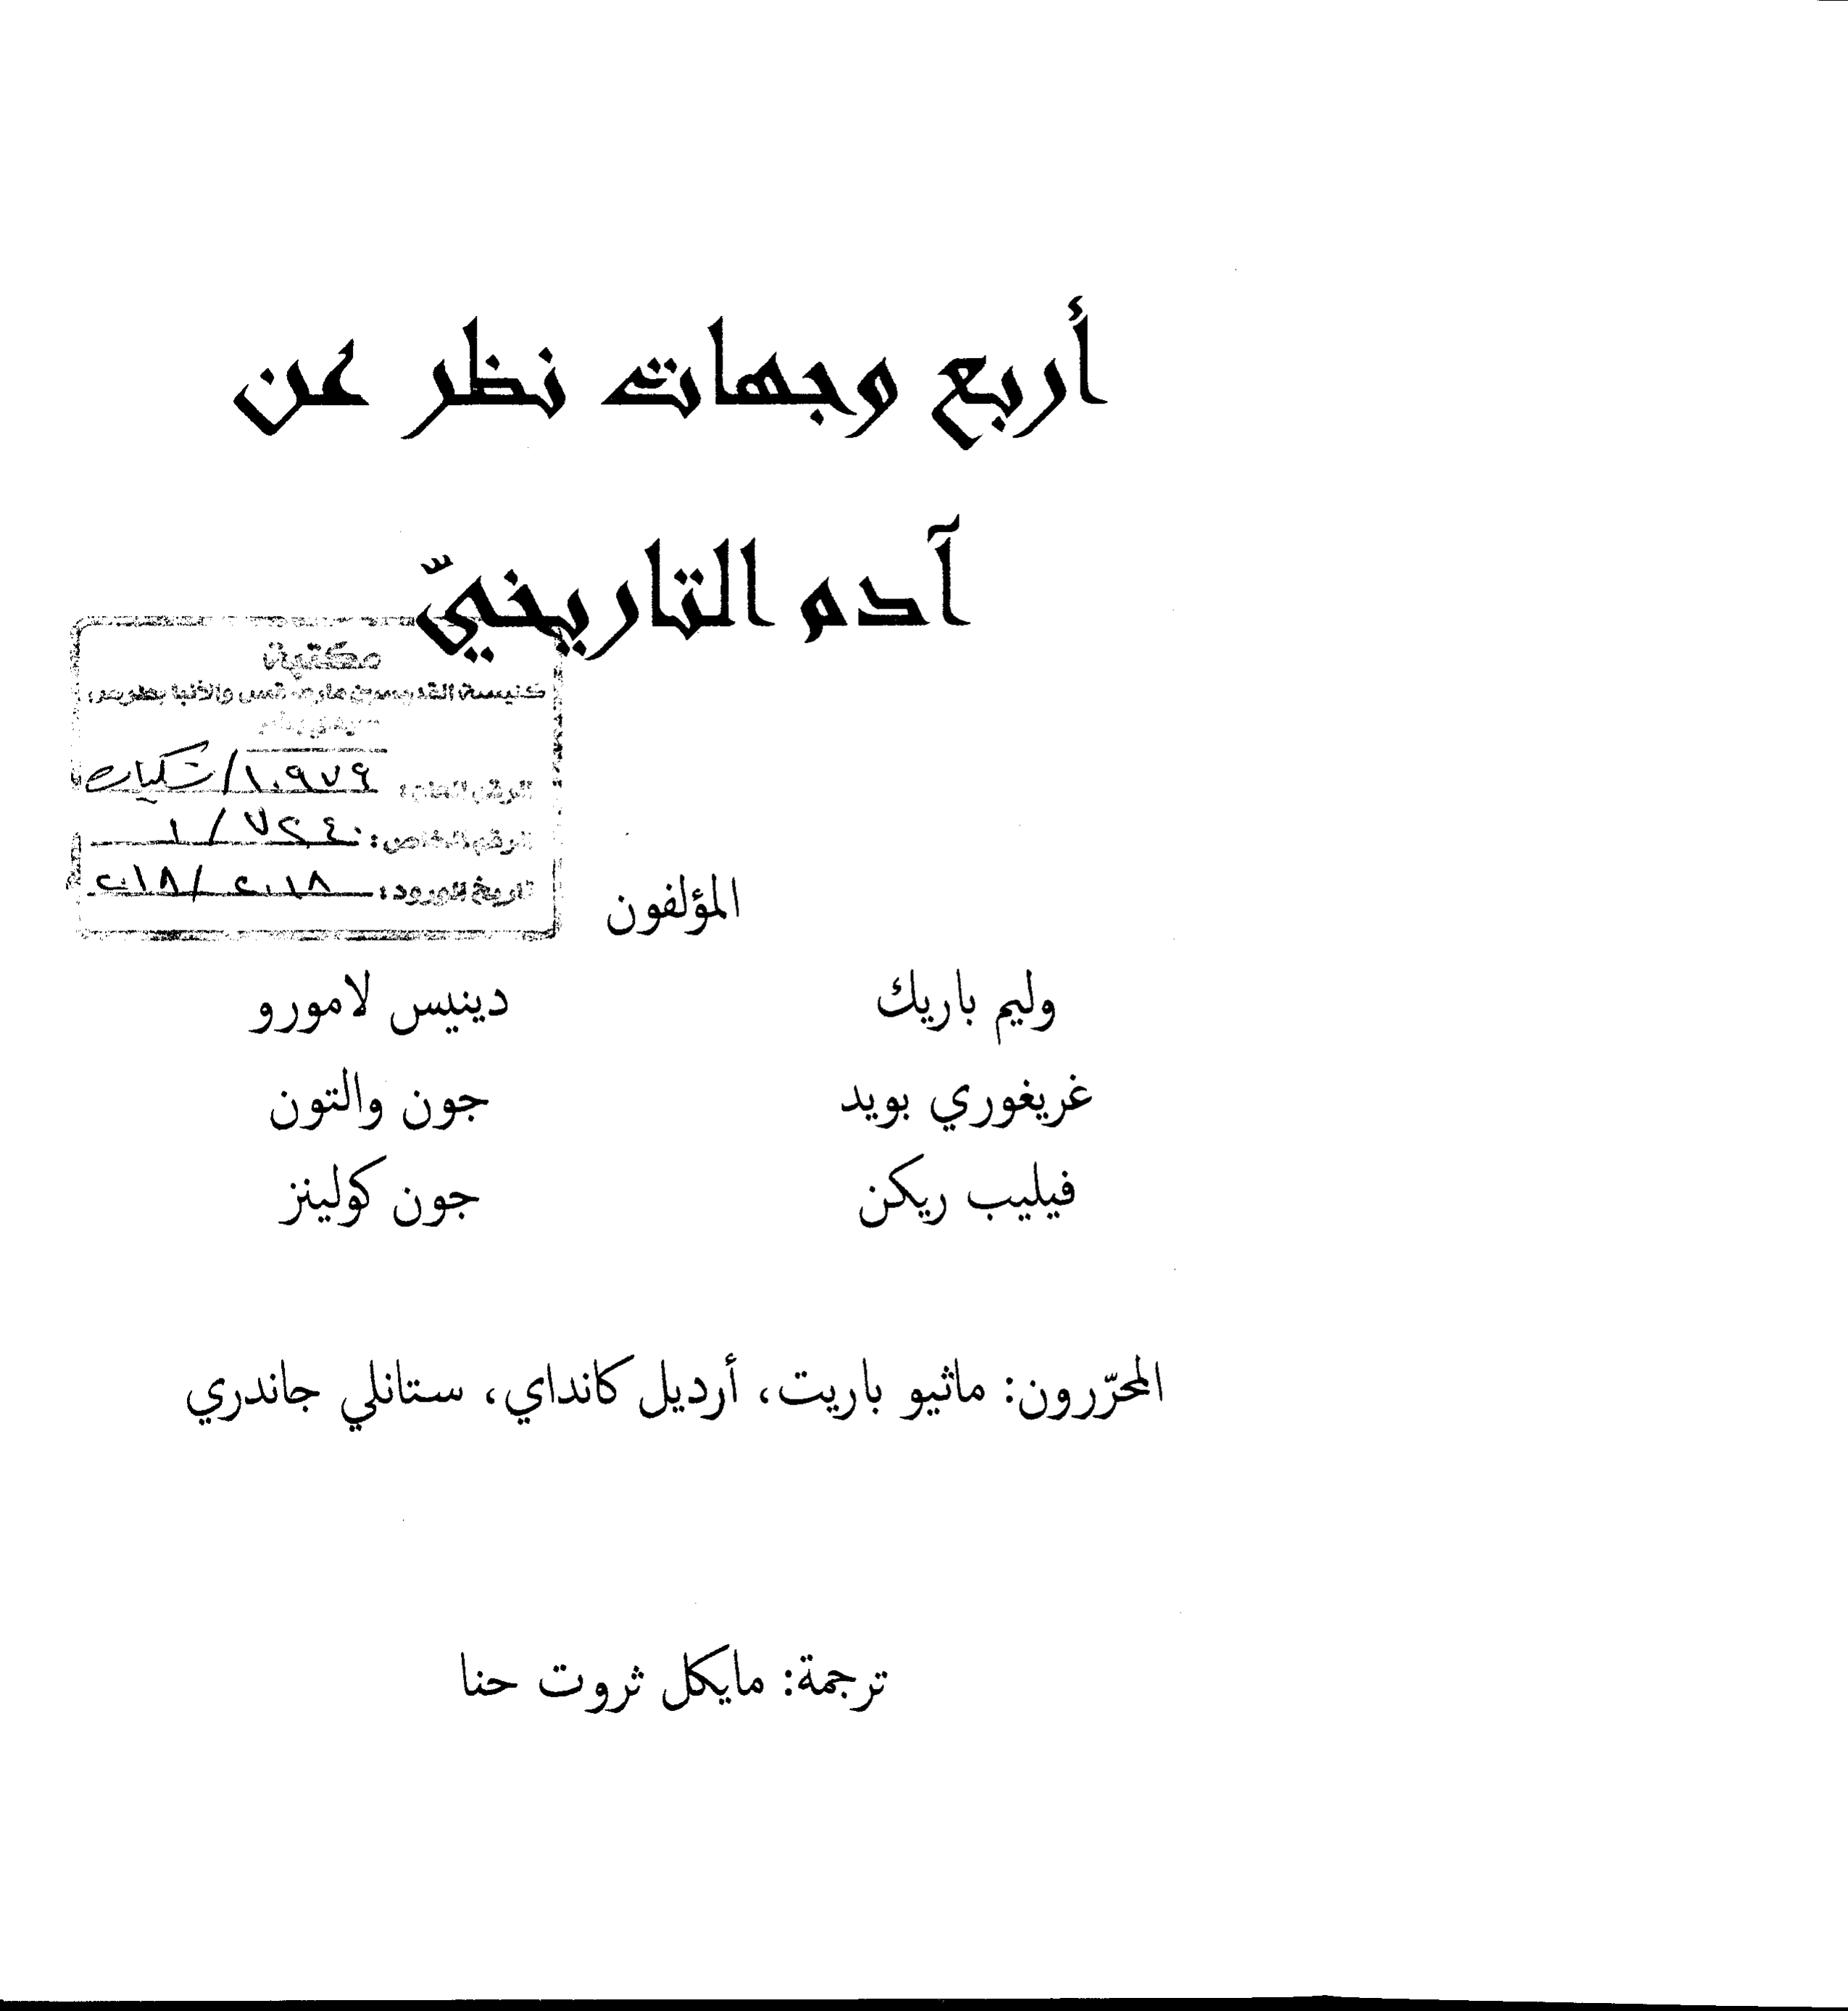 أربع وجهات نظر عن
آدم التاريخيّ
مكتبة
كنيسة القديسين مارمرقس والأنبا بطرس
الرقم العام: ١٠٩٧٩/
الرقم الخاص: ٧٢٤٠/ ١
تاريخ الورود: ٢٠١٨/
المؤلفون
وليم باريك دينيس لامورو
غريغوري بويد جون والتون
فيليب ريكن جون كولينز
المحرّرون: ماثيو باريت، أرديل كانداي، ستانلي جاندري
ترجمة: مايكل ثروت حنا